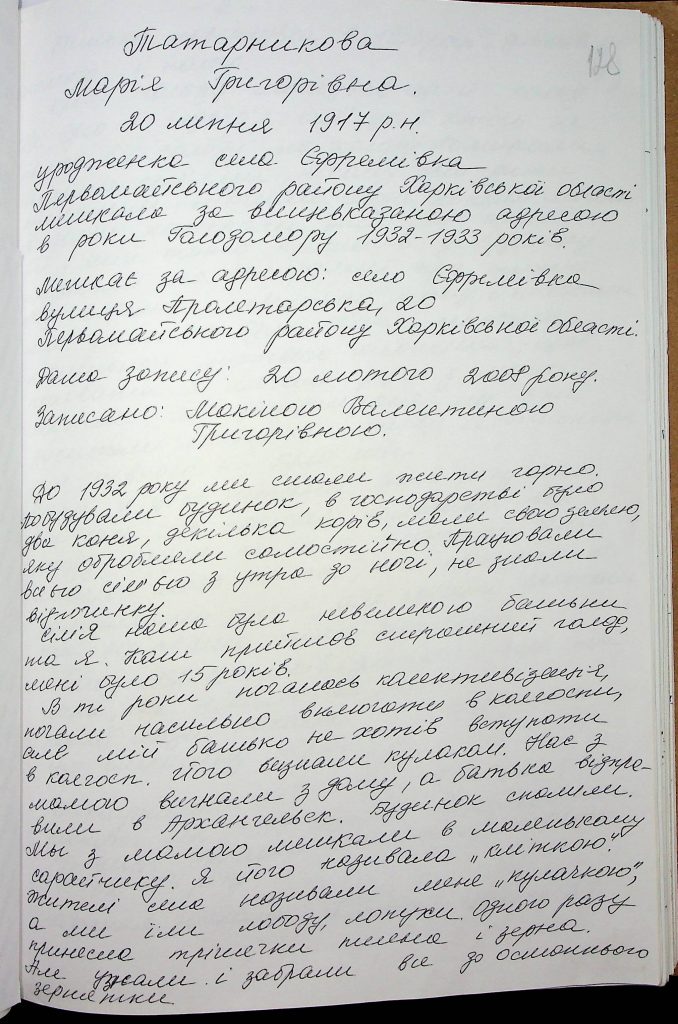 128
Татарникова
Марія Григорівна.
20 липня 1917 р.н.
уродженка села Єфремівка
Первомайського району Харківської області
мешкала за вищевказаною адресою
в роки Голодомору 1932-1933 років.
Мешкає за адресою: село Єфремівка
вулиця Пролетарська, 20
Первомайського району Харківської області.
Дата запису: 20 лютого 2008 року.
Записано: Мокіною Валентиною
Григорівною.
До 1932 року ми стали жити гарно.
Побудували будинок, в господарстві було
два коня, декілька корів, мали свою землю,
яку обробляли самостійно. Працювали
всією сім'ью з утра до ночі, не знали
відпочинку.
Сімія наша була невеликою батьки
та я. Коли прийшов страшний голод,
мені було 15 років.
В ті роки почалось колективізація,
почали насильно вимогати в колгоспи,
але мій батько не хотів вступати
в колгосп. Його визнали кулаком. Нас з
мамою вигнали з дому, а батька відпра-
вили в Архангельск. Будинок спалили.
Мы з мамою мешкали в маленькому
сарайчику. Я його називала „кліткою".
Жителі села називали мене „кулачкою",
а ми їли лободу, лопухи. Одного разу
принесла трішечки пшена і зерна.
Але узнали і забрали все до останнього
зернятки